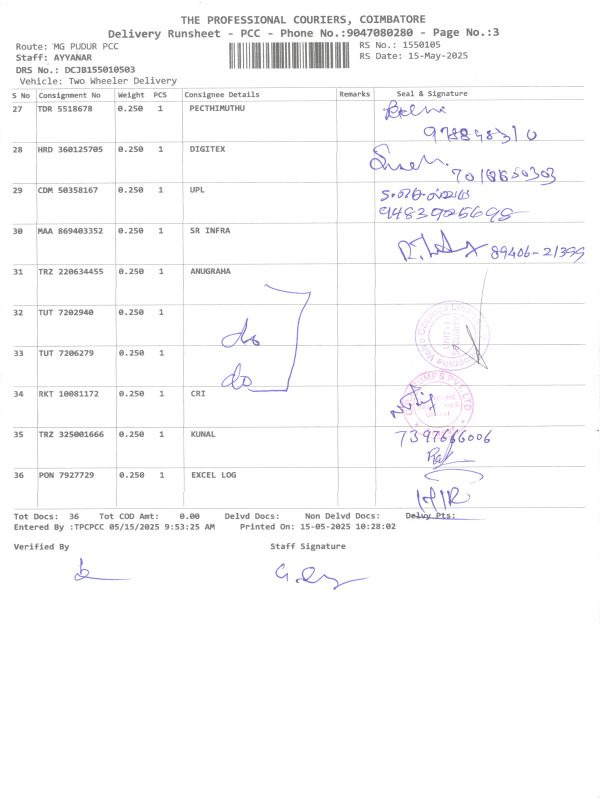 THE PROFESSIONAL COURIERS, COIMBATORE
Delivery Runsheet - PCC - Phone No.:9047080280 - Page No.:3
Route: MG PUDUR PCC
RS No.: 1550105
Staff: AYYANAR
RS Date: 15-May-2025
DRS No.: DCJB155010503
Vehicle: Two Wheeler Delivery
S No Consignment No Weight PCS Consignee Details Remarks Seal & Signature
27 TDR 5518678 0.250 1 PECTHIMUTHU
28 HRD 360125705 0.250 1 DIGITEX
29 CDM 50358167 0.250 1 UPL
9483925698
30 MAA 869403352 0.250 1 SR INFRA
89406-21399
31 TRZ 220634455 0.250 1 ANUGRAHA
32 TUT 7202940 0.250 1 do
33 TUT 7206279 0.250 1 do
34 RKT 10081172 0.250 1 CRI
35 TRZ 325001666 0.250 1 KUNAL 7397666006
36 PON 7927729 0.250 1 EXCEL LOG
Tot Docs: 36 Tot COD Amt: 0.00 Delvd Docs: Non Delvd Docs: Delvy Pts:
Entered By :TPCPCC 05/15/2025 9:53:25 AM Printed On: 15-05-2025 10:28:02
Verified By Staff Signature